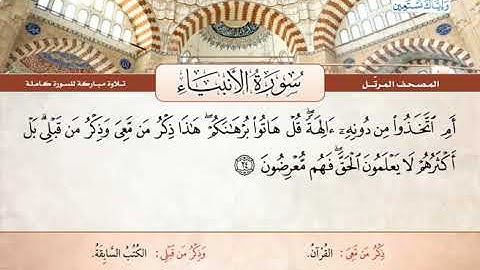 وإياك نستعين
المصحف المرتّل
سُورَةُ الأَنْبِيَاء
تلاوة مباركة للسورة كاملة
أَمِ ٱتَّخَذُوا۟ مِن دُونِهِۦٓ ءَالِهَةً ۖ قُلْ هَاتُوا۟ بُرْهَـٰنَكُمْ ۖ هَـٰذَا ذِكْرُ مَن مَّعِىَ وَذِكْرُ مَن قَبْلِى ۗ بَلْ
أَكْثَرُهُمْ لَا يَعْلَمُونَ ٱلْحَقَّ ۖ فَهُم مُّعْرِضُونَ ٢٤
ذِكْرُ مَن مَّعِيَ: القُرْآنُ. وَذِكْرُ مَن قَبْلِي: الكُتُبُ السَّابِقَةُ.